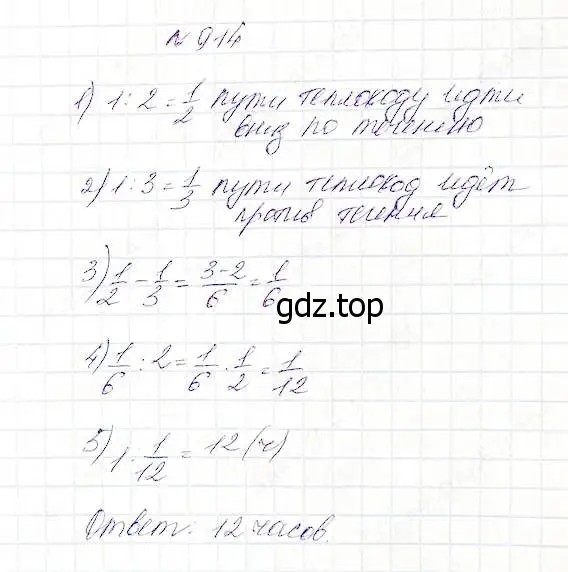 № 914
1) 1 : 2 = 1/2 пути теплоходу идти
вниз по течению
2) 1 : 3 = 1/3 пути теплоход идёт
против течения
3) 1/2 - 1/3 = (3-2)/6 = 1/6
gdz.top
4) 1/6 : 2 = 1/6 · 1/2 = 1/12
5) 1 : 1/12 = 12 (ч)
Ответ: 12 часов.